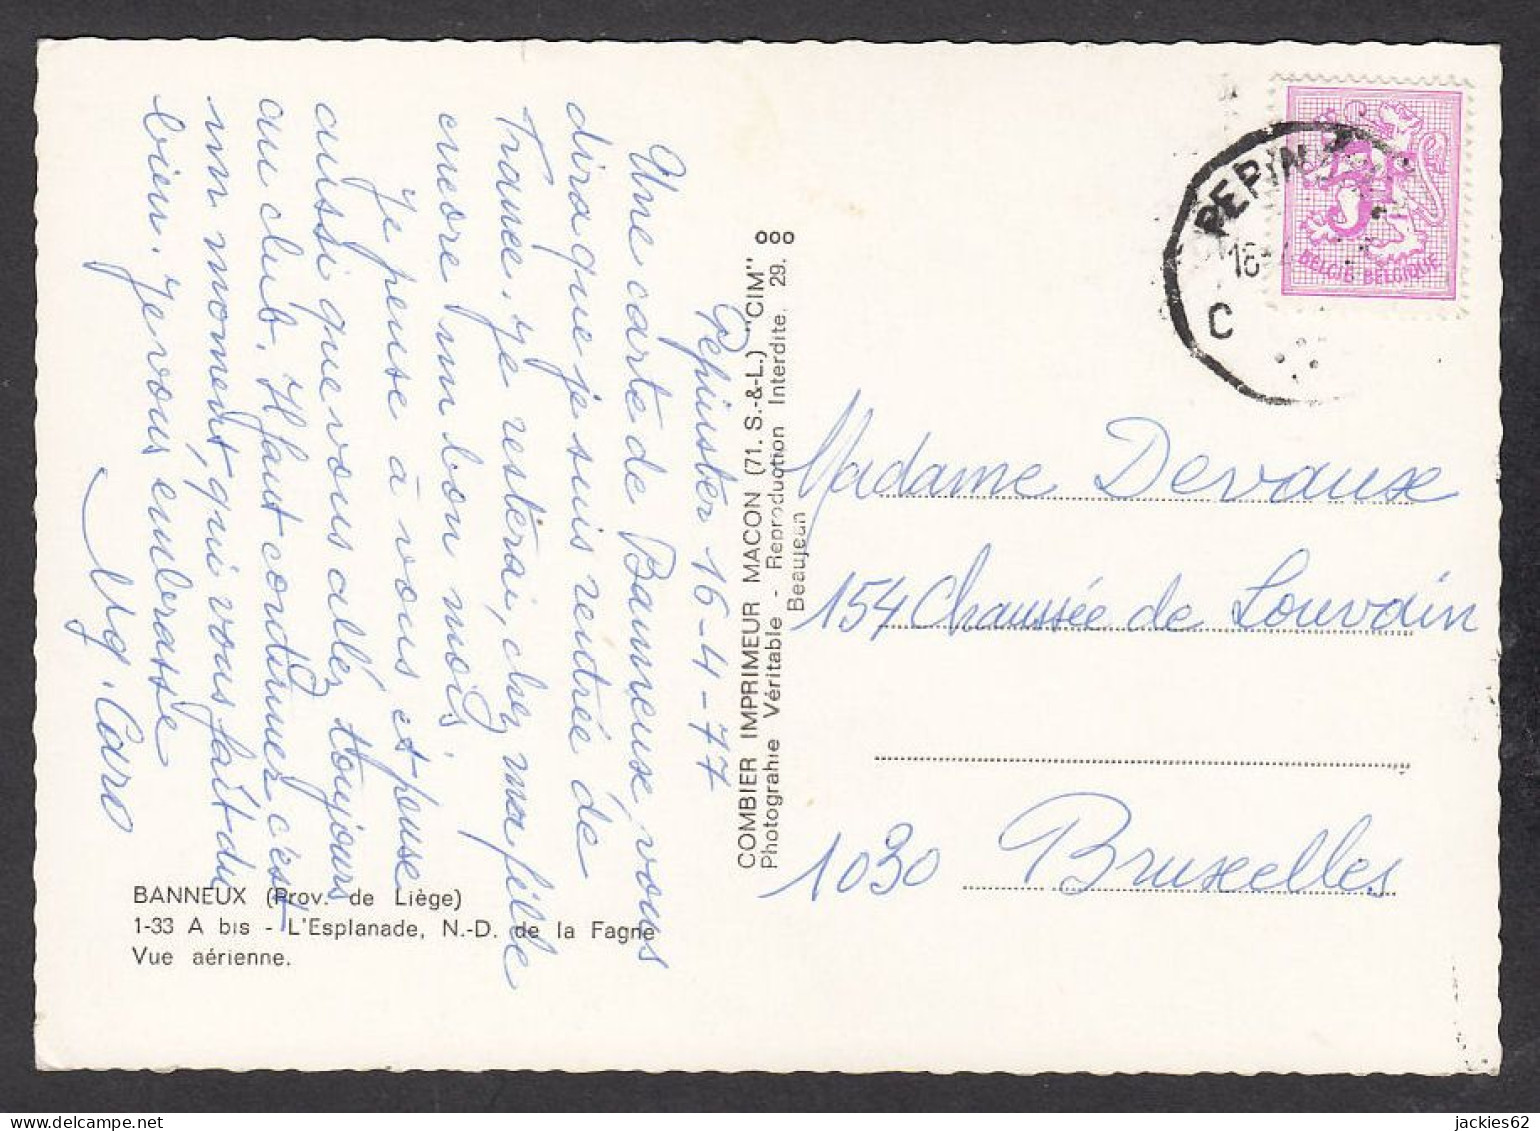 Pepinster 16-4-77
Une carte de Banneux, vous
dira que je suis rentrée de
France. Je resterai, chez ma fille
encore un bon mois.
Je pense à vous et pense
aussi que vous allez toujours
au club. Il faut continuer c'est
un moment, qui vous fait du
bien. Je vous embrasse
Caro
BANNEUX (Prov. de Liège)
1-33 A bis - L'Esplanade, N.-D. de la Fagne
Vue aérienne.
COMBIER IMPRIMEUR MACON (71. S.-&-L.) "CIM"
Photograhie Véritable - Reproduction Interdite. 29. ooo
Beaujean
PEPIN
16-4
C
BELGIE-BELGIQUE
Madame Devaux
154 Chaussée de Louvain
1030 Bruxelles
jackies62